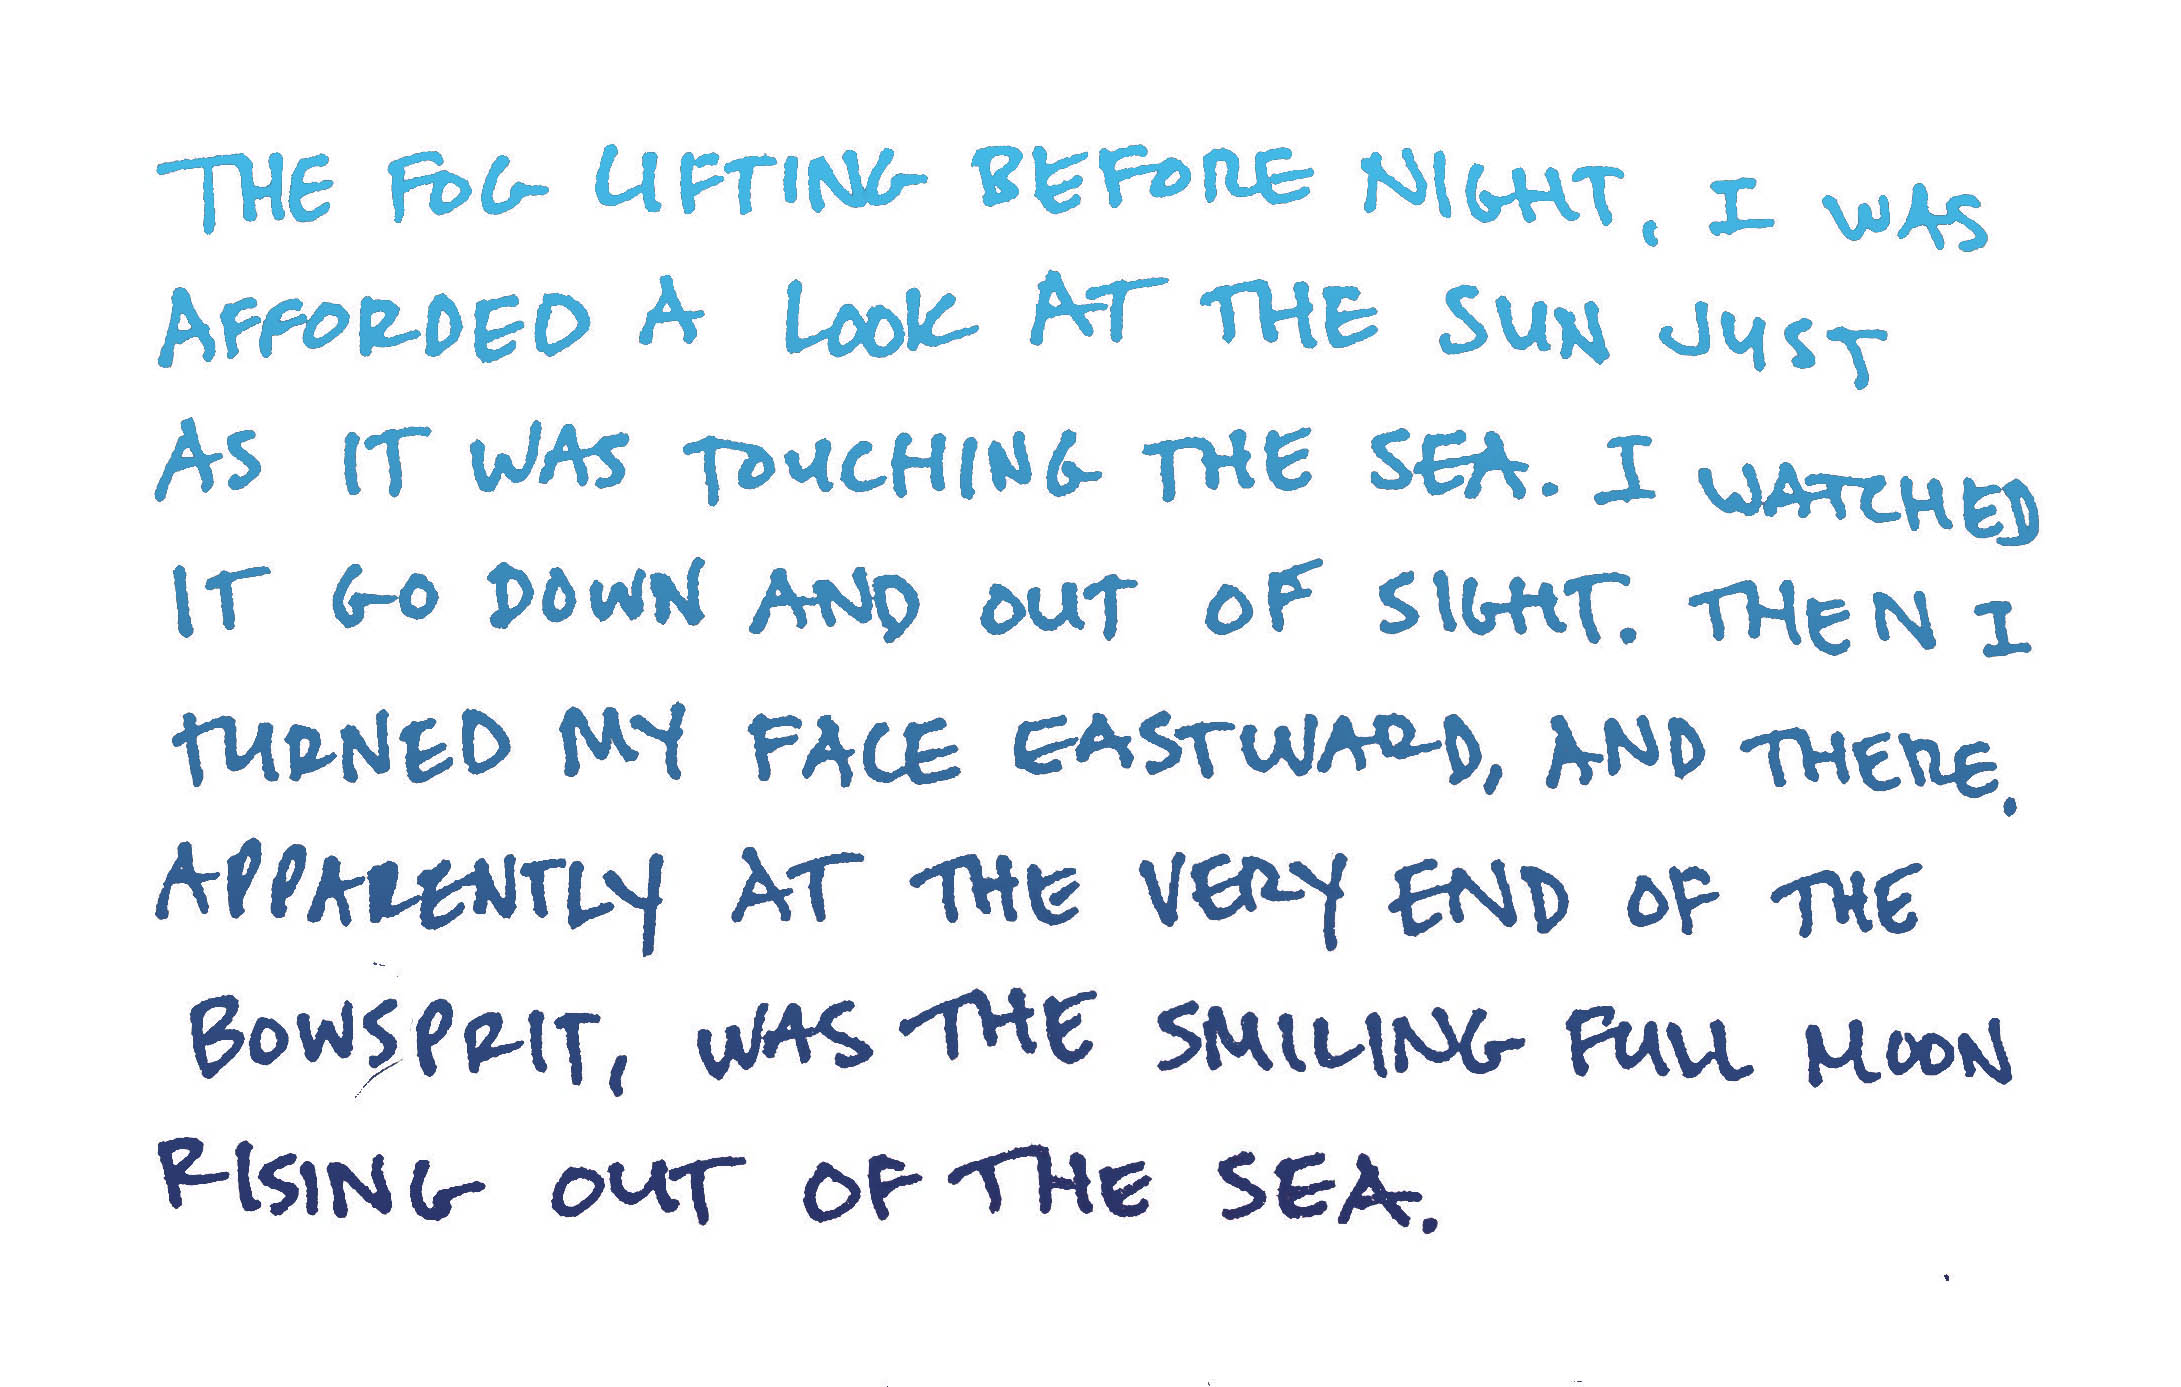 THE FOG LIFTING BEFORE NIGHT, I WAS
AFFORDED A LOOK AT THE SUN JUST
AS IT WAS TOUCHING THE SEA. I WATCHED
IT GO DOWN AND OUT OF SIGHT. THEN I
TURNED MY FACE EASTWARD, AND THERE,
APPARENTLY AT THE VERY END OF THE
BOWSPRIT, WAS THE SMILING FULL MOON
RISING OUT OF THE SEA.